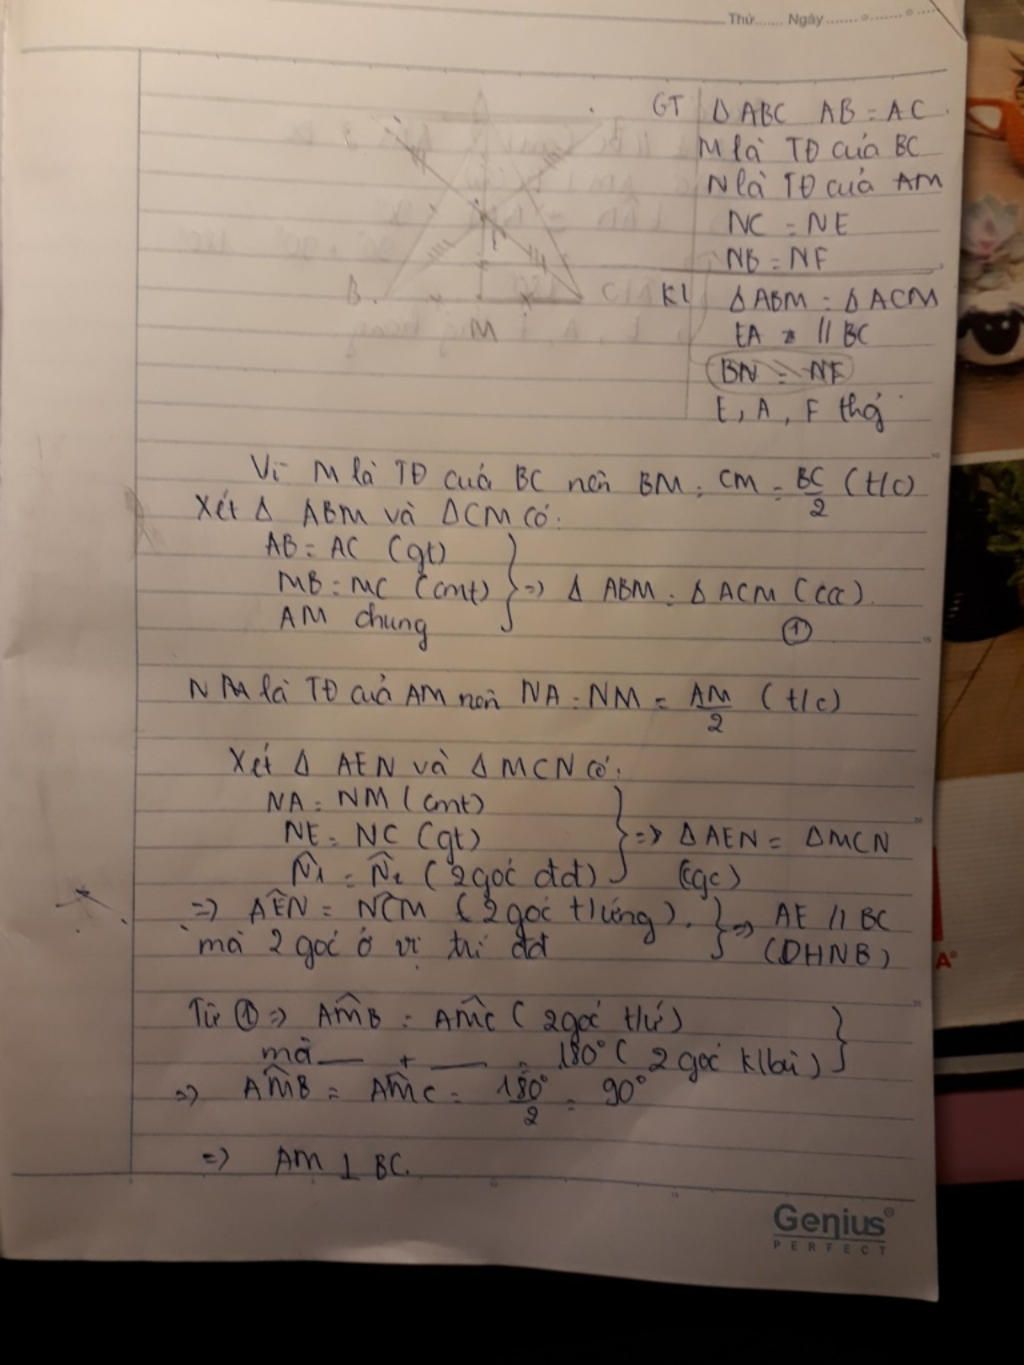 Thứ...... Ngày.......
GT Δ ABC AB = AC
M là TĐ của BC
N là TĐ của AM
NC = NE
NB = NF
KL Δ ABM = Δ ACM
EA // BC
BN = NF
E, A, F thg
B
C
M
Vì M là TĐ của BC nên BM = CM = BC/2 (t/c)
Xét Δ ABM và ΔCM có:
AB = AC (gt)
MB = MC (cmt) => Δ ABM = Δ ACM (ccc).
AM chung
①
N là TĐ của AM nên NA = NM = AM/2 (t/c)
Xét Δ AEN và Δ MCN có:
NA = NM (cmt)
NE = NC (gt) => Δ AEN = Δ MCN
N̂1 = N̂2 (2 góc đđ) (cgc)
=> AÊN = NĈM (2 góc t/ứng). => AE // BC
mà 2 góc ở vị trí đđ (DHNB)
Từ ① => AM̂B = AM̂C (2 góc t/ứ)
mà — + — = 180° (2 góc k/bù)
=> AM̂B = AM̂C = 180°/2 = 90°
=> AM ⊥ BC.
Genius
PERFECT